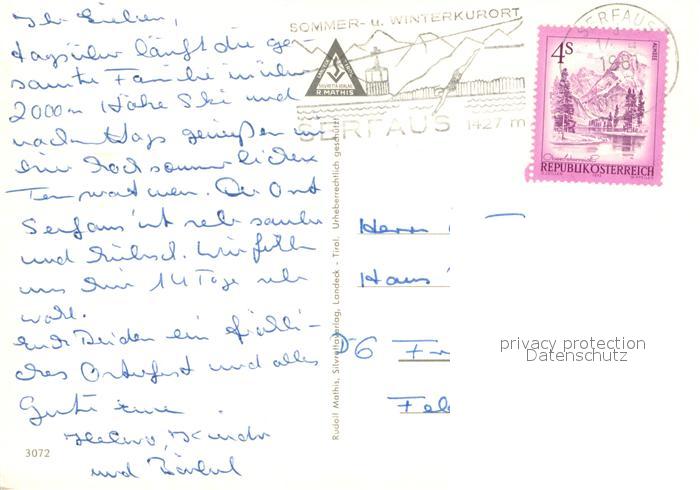 Ihr Lieben,
tagsüber läuft die ge-
samte Familie in über
2000 m Höhe Ski und
nachmittags genießen wir
eine hochsommerlichen
Der Ort
Serfaus ist sehr sauber
und hübsch. Wir fühlen
uns hier 14 Tage sehr
wohl.
Euch Beiden ein fröhli-
ches Osterfest und alles
Gute
und Bärbel
3072
Rudolf Mathis, Silvrettaverlag, Landeck - Tirol. Urheberrechtlich geschützt
SOMMER- u. WINTERKURORT
R. MATHIS
SERFAUS 1427 m
SERFAUS
1981
4S
REPUBLIK ÖSTERREICH
Herrn
Hans
D-6 Fr
Fel
privacy protection
Datenschutz